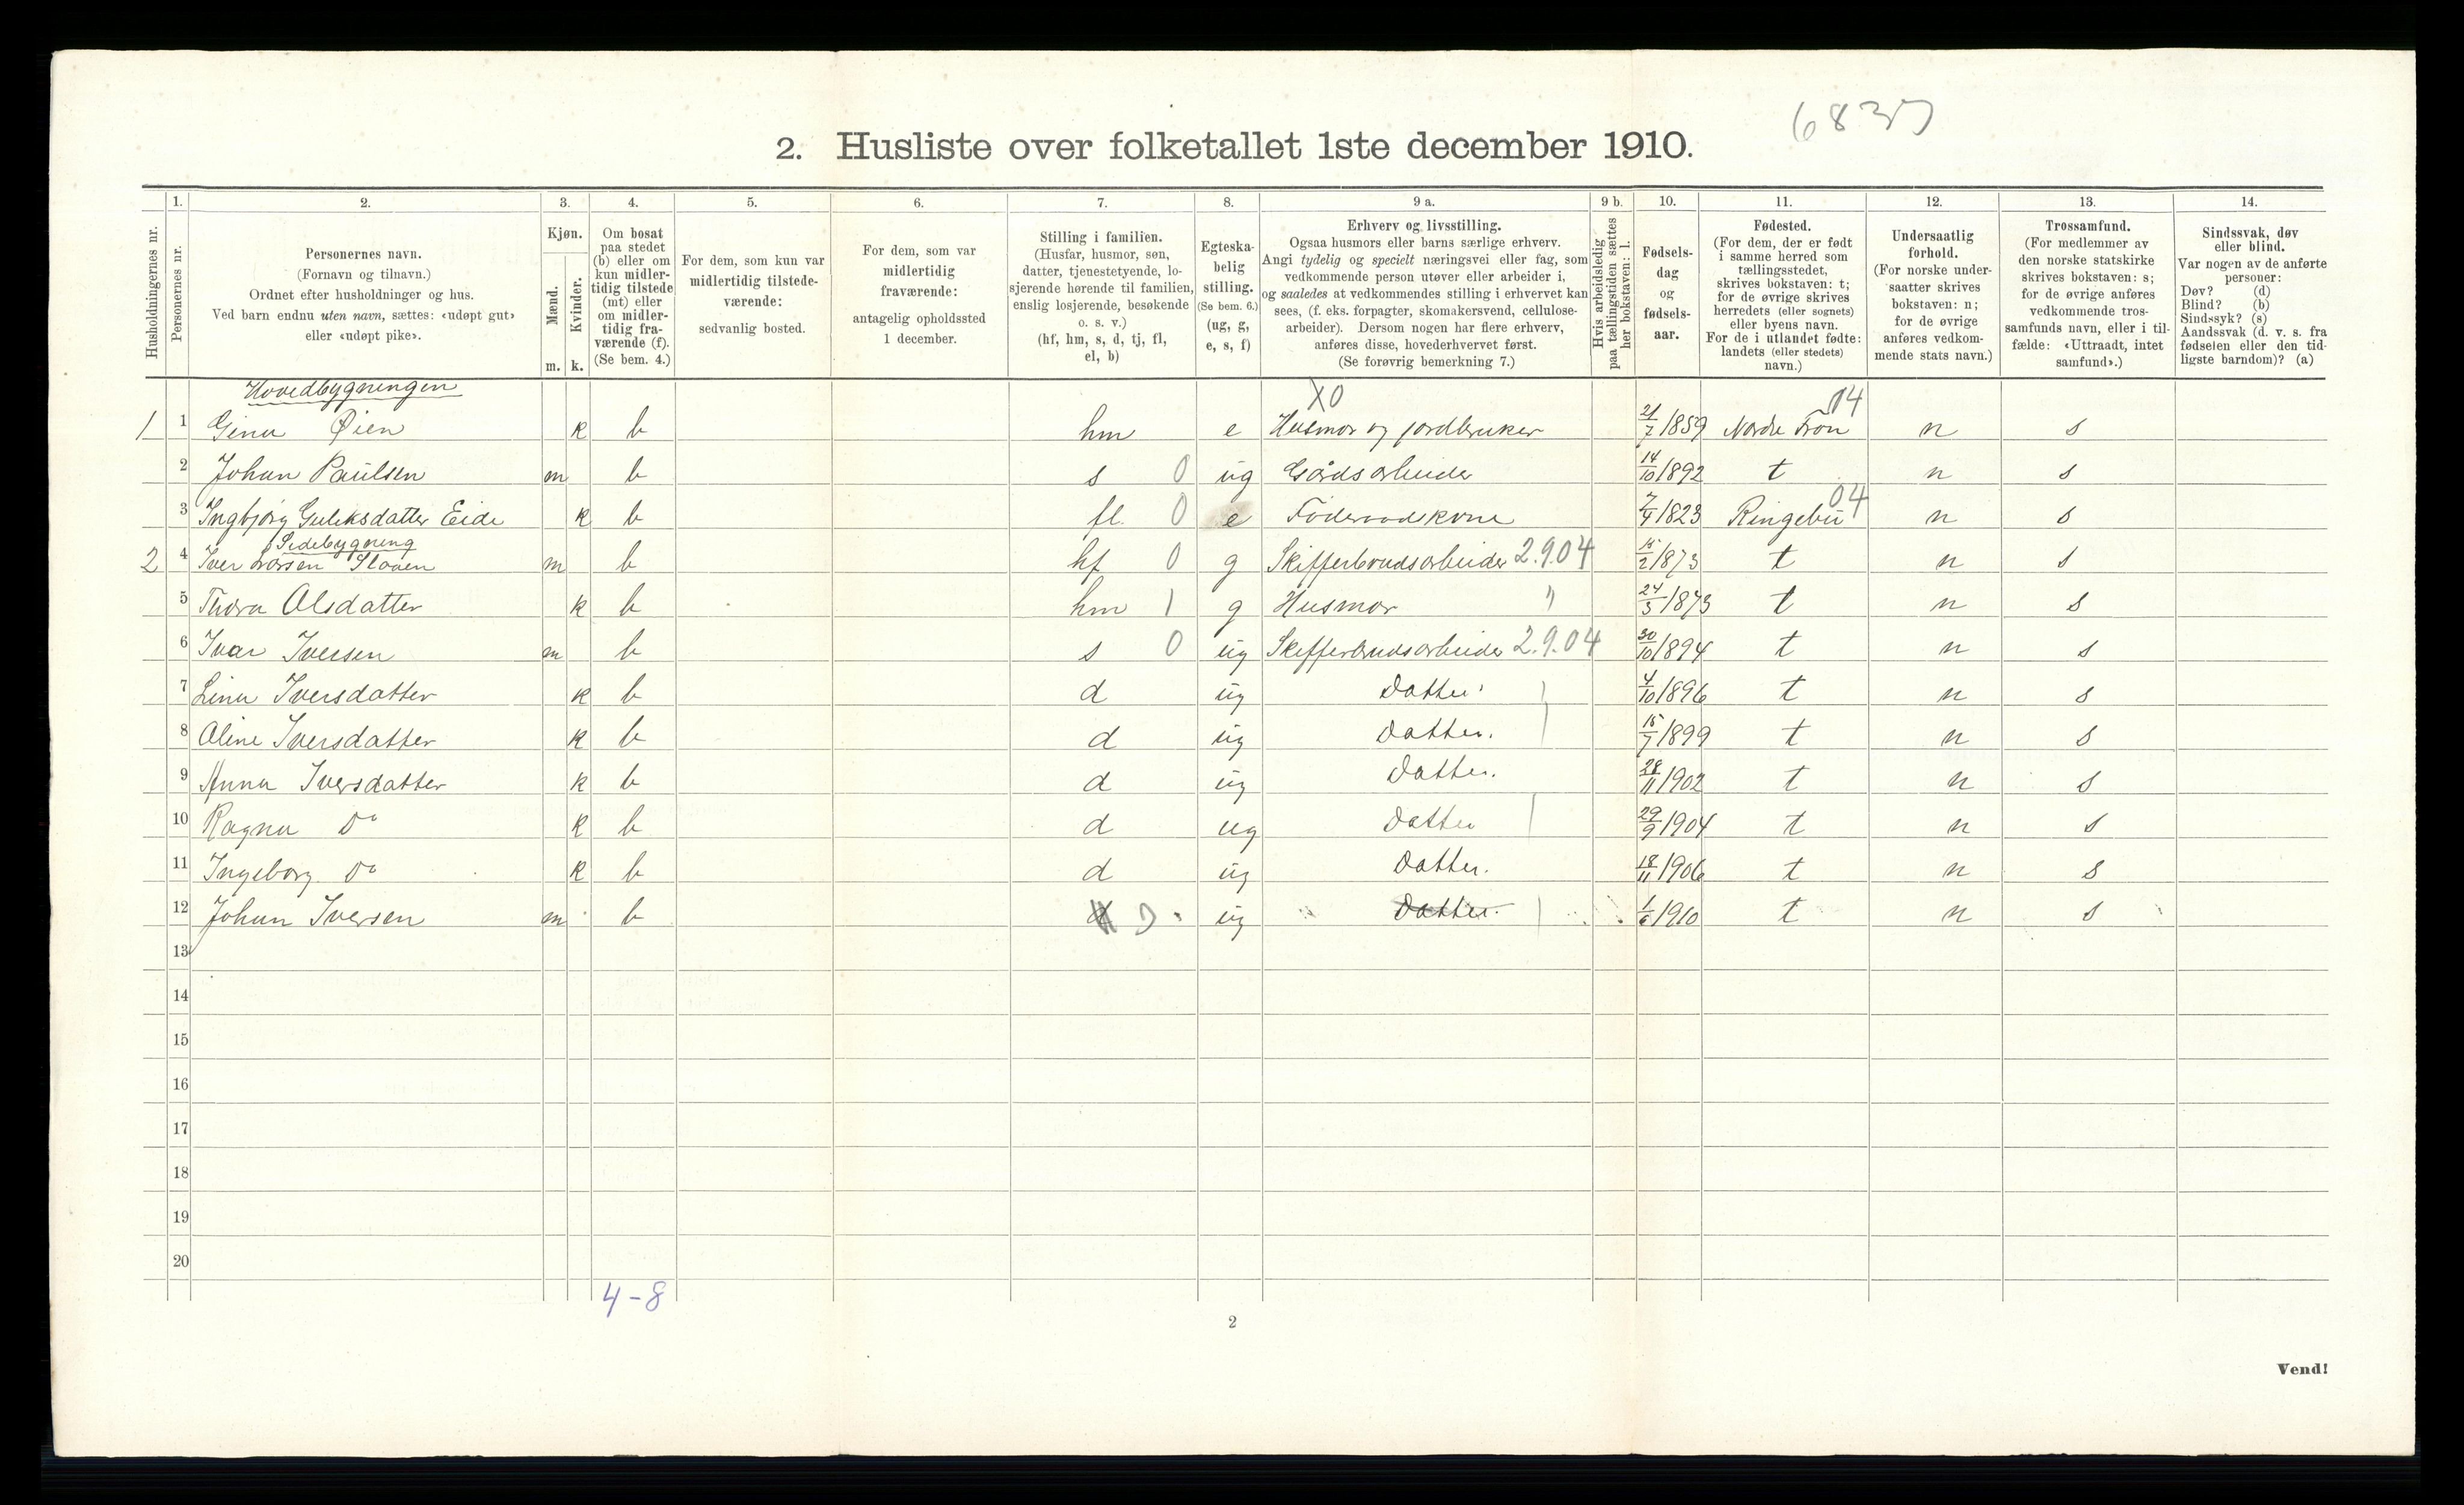 6837
2. Husliste over folketallet 1ste december 1910.
Husholdningernes nr.
1. Personernes nr.
2. Personernes navn. (Fornavn og tilnavn.) Ordnet efter husholdninger og hus. Ved barn endnu uten navn, sættes: «udøpt gut» eller «udøpt pike».
3. Kjøn. Mænd. m. Kvinder. k.
4. Om bosat paa stedet (b) eller om kun midlertidig tilstede (mt) eller om midlertidig fraværende (f). (Se bem. 4.)
5. For dem, som kun var midlertidig tilstedeværende: sedvanlig bosted.
6. For dem, som var midlertidig fraværende: antagelig opholdssted 1 december.
7. Stilling i familien. (Husfar, husmor, søn, datter, tjenestetyende, losjerende hørende til familien, enslig losjerende, besøkende o. s. v.) (hf, hm, s, d, tj, fl, el, b)
8. Egteskabelig stilling. (Se bem. 6.) (ug, g, e, s, f)
9 a. Erhverv og livsstilling. Ogsaa husmors eller barns særlige erhverv. Angi tydelig og specielt næringsvei eller fag, som vedkommende person utøver eller arbeider i, og saaledes at vedkommendes stilling i erhvervet kan sees, (f. eks. forpagter, skomakersvend, cellulosearbeider). Dersom nogen har flere erhverv, anføres disse, hovederhvervet først. (Se forøvrig bemerkning 7.)
9 b. Hvis arbeidsledig paa tællingstiden sættes her bokstaven: l.
10. Fødselsdag og fødselsaar.
11. Fødested. (For dem, der er født i samme herred som tællingsstedet, skrives bokstaven: t; for de øvrige skrives herredets (eller sognets) eller byens navn. For de i utlandet fødte: landets (eller stedets) navn.)
12. Undersaatlig forhold. (For norske undersaatter skrives bokstaven: n; for de øvrige anføres vedkommende stats navn.)
13. Trossamfund. (For medlemmer av den norske statskirke skrives bokstaven: s; for de øvrige anføres vedkommende trossamfunds navn, eller i tilfælde: «Uttraadt, intet samfund».)
14. Sindssvak, døv eller blind. Var nogen av de anførte personer: Døv? (d) Blind? (b) Sindssyk? (s) Aandssvak (d. v. s. fra fødselen eller den tidligste barndom)? (a)
Hovedbygningen X0 04
1 1 Gina Øien k b hm e Husmor og jordbruker 21/7 1859 Nordre Fron n s
2 Johan Paulsen m b s 0 ug Gårdsarbeider 14/10 1892 t n s
3 Ingbjørg Guliksdatter Eide k b fl. 0 e Föderaadskone 7/4 1823 Ringebu 04 n s
Sidebygning
2 4 Iver Larsen Sloven m b hf 0 g Skifferbrudsarbeider 2.9.04 15/2 1873 t n s
5 Thora Olsdatter k b hm 1 g Husmor " 24/3 1873 t n s
6 Ivar Iversen m b s 0 ug Skifferbrudsarbeider 2.9.04 30/10 1894 t n s
7 Lina Iversdatter k b d ug Datter 4/10 1896 t n s
8 Oline Iversdatter k b d ug Datter. 15/7 1899 t n s
9 Anna Iversdatter k b d ug Datter. 28/11 1902 t n s
10 Ragna Do k b d ug Datter 29/9 1904 t n s
11 Ingeborg Do k b d ug Datter. 18/11 1906 t n s
12 Johan Iversen m b d ug Datter. 1/6 1910 t n s
13
14
15
16
17
18
19
20
4-8
2
Vend!